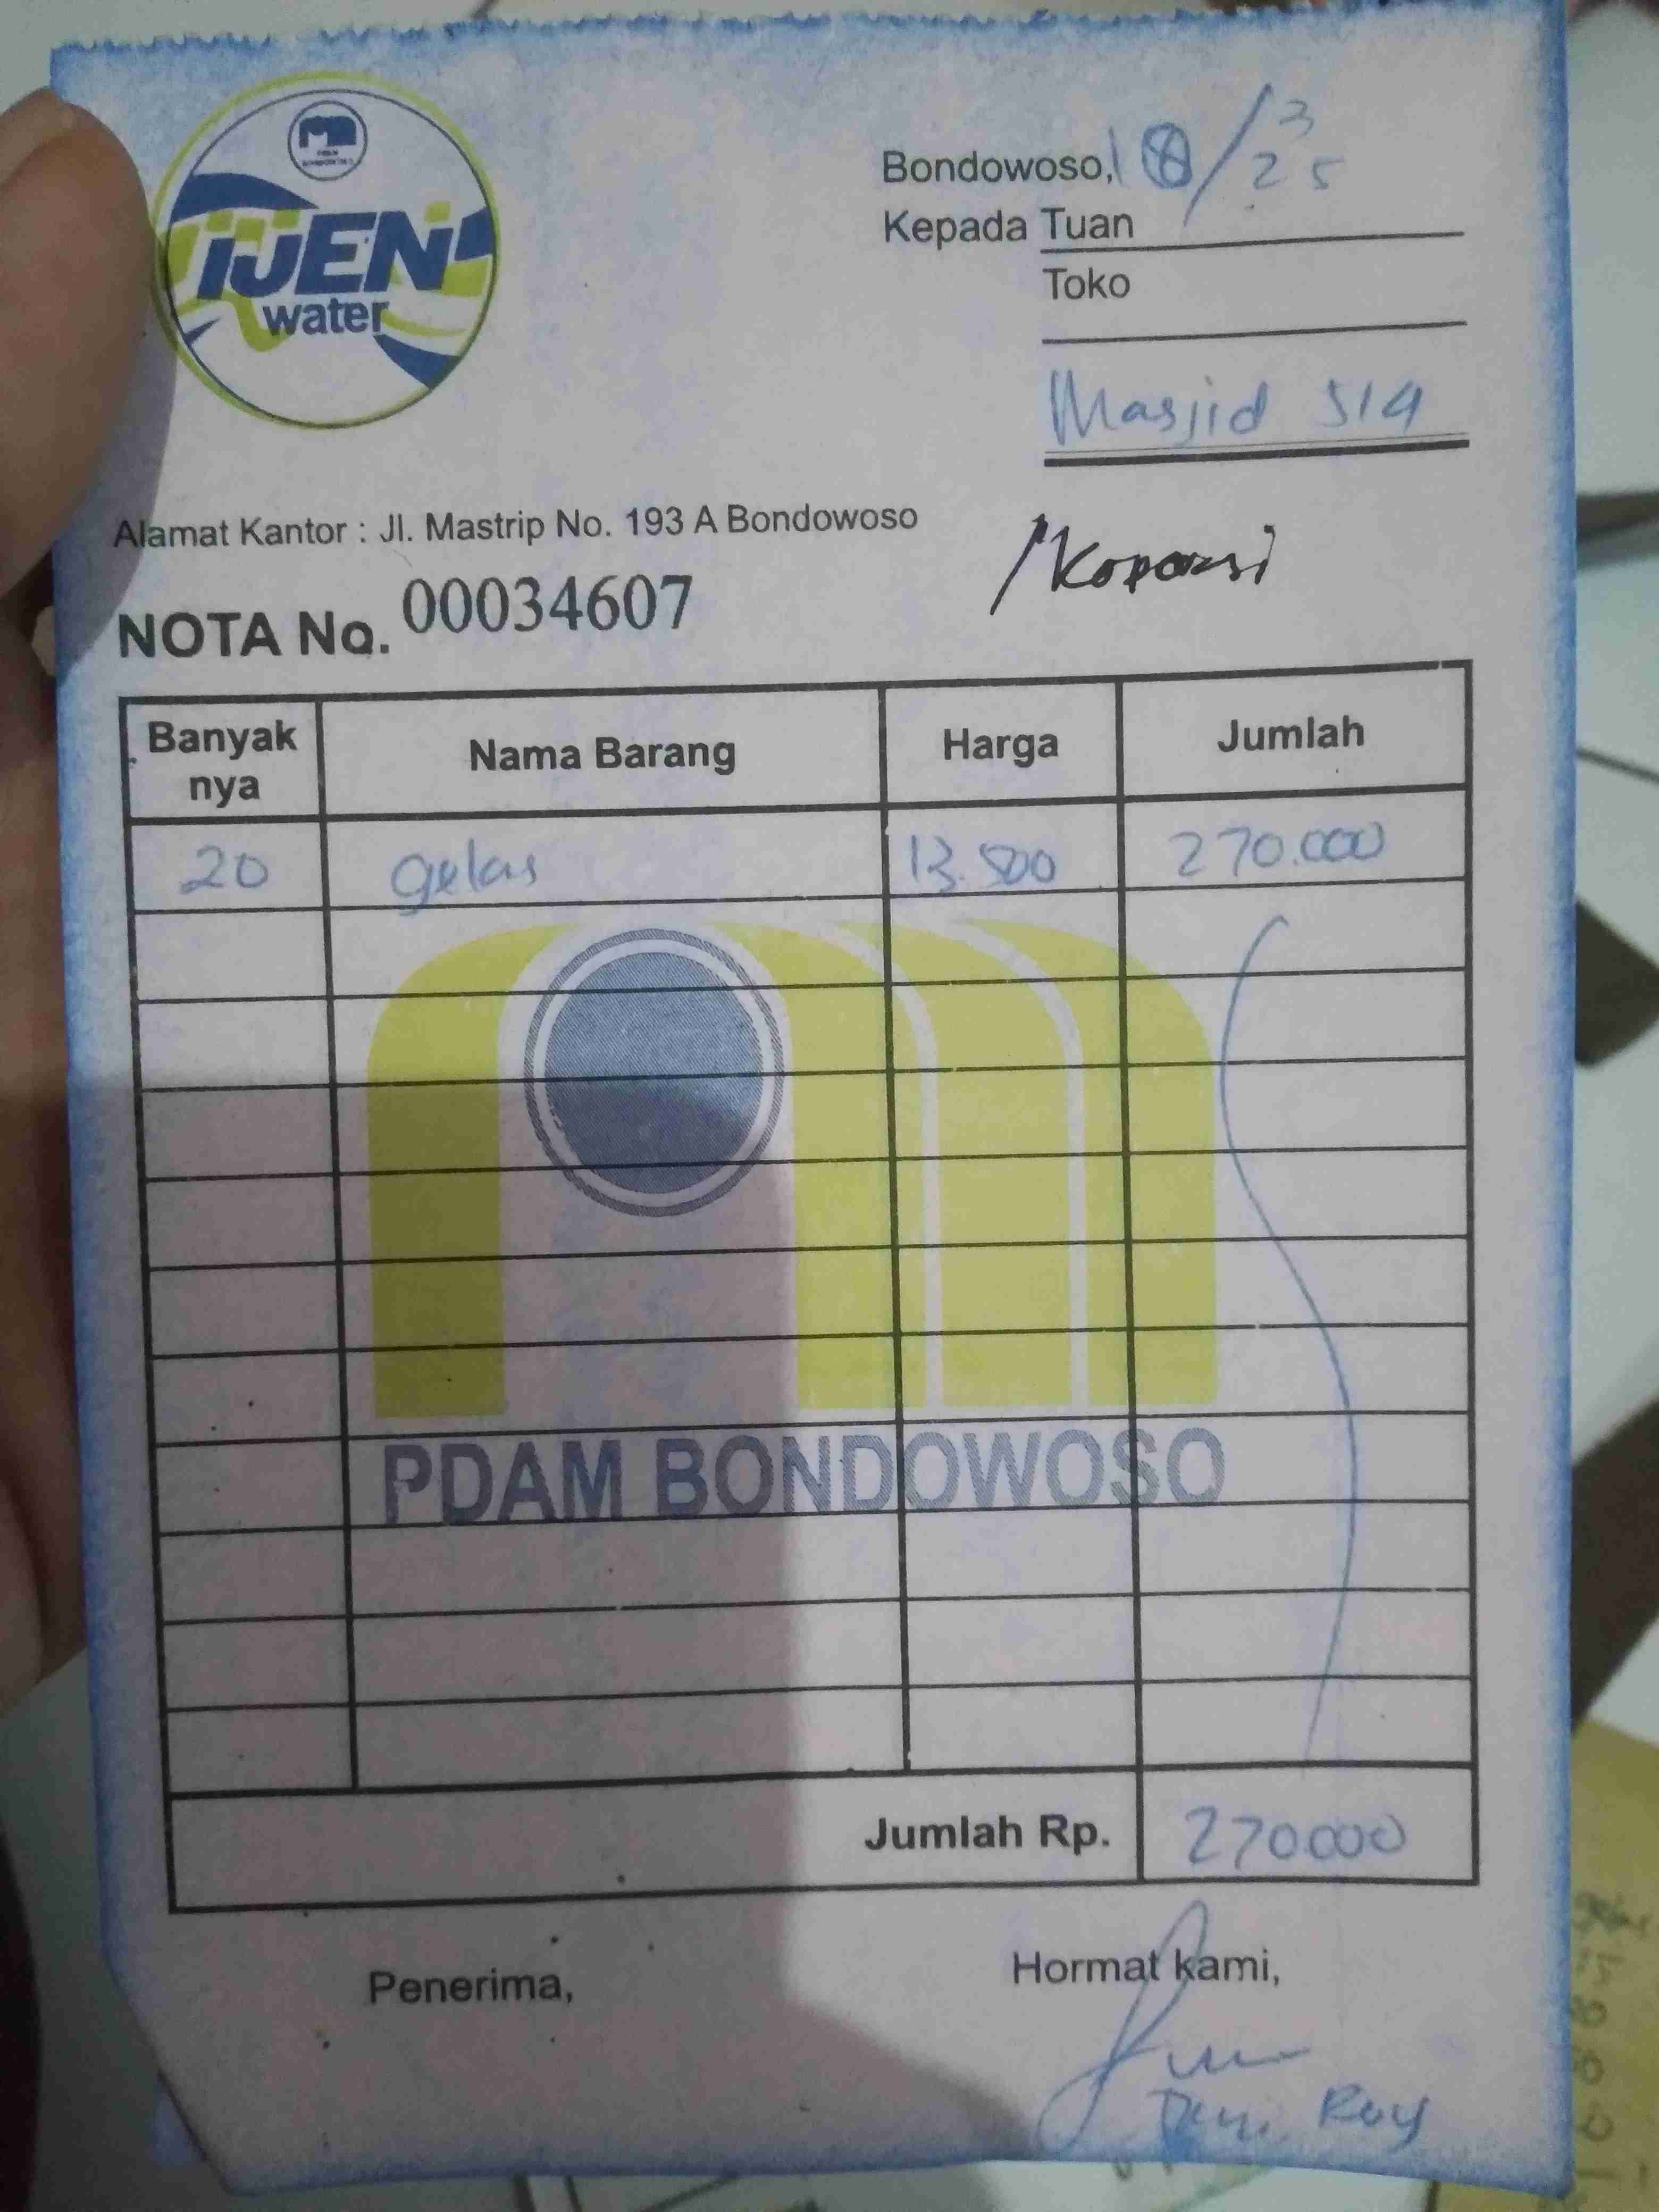 IJEN
water
Bondowoso, 18/3 25
Kepada Tuan
Toko
Masjid
Alamat Kantor : Jl. Mastrip No. 193 A Bondowoso
NOTA No. 00034607
Banyak nya Nama Barang Harga Jumlah
20 gelas 13.500 270.000
PDAM BONDOWOSO
Jumlah Rp. 270.000
Penerima, Hormat kami,